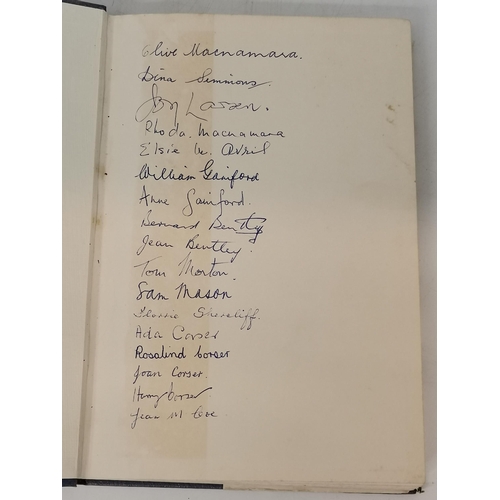 Olive Macnamara.
Dina Simmons.
Joy Larsen.
Rhoda. Macnamara
Elsie M. Avril
William Gainford
Anne Gainford.
Bernard Bentley
Jean Bentley.
Tom Morton.
Sam Mason
Florrie
Ada Corser
Rosalind Corser
Joan Corser.
Harry Corser
Jean M